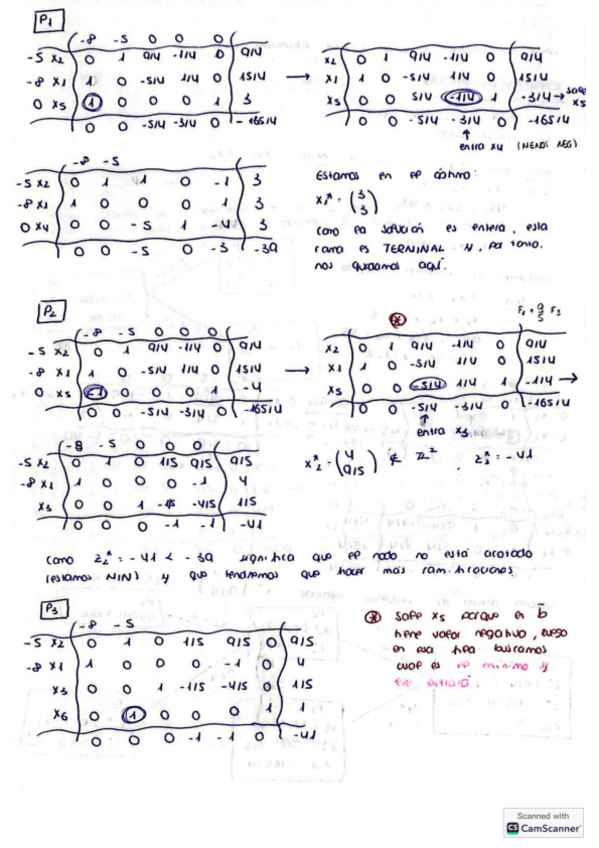 P1
-8 -5 0 0 0
-5 x2 0 1 9/4 -1/4 0 9/4
-8 x1 1 0 -5/4 1/4 0 15/4
0 x5 1 0 0 0 1 3
0 0 -5/4 -3/4 0 -165/4
x2 0 1 9/4 -1/4 0 9/4
x1 1 0 -5/4 1/4 0 15/4
x5 0 0 5/4 -1/4 1 -3/4 → sale x5
0 0 -5/4 -3/4 0 -165/4
↑
entra x4 (MENOS NEG)
-8 -5
-5 x2 0 1 1 0 -1 3
-8 x1 1 0 0 0 1 3
0 x4 0 0 -5 1 -4 3
0 0 -5 0 -3 -39
Estamos en el óptimo:
x1* = (3 3)
Como la solución es entera, esta
rama es TERMINAL y, por tanto,
nos quedamos aquí.
P2
-8 -5 0 0 0
-5 x2 0 1 9/4 -1/4 0 9/4
-8 x1 1 0 -5/4 1/4 0 15/4
0 x5 -1 0 0 0 1 -4
0 0 -5/4 -3/4 0 -165/4
F1 + 9/5 F3
x2 0 1 9/4 -1/4 0 9/4
x1 1 0 -5/4 1/4 0 15/4
x5 0 0 -5/4 1/4 1 -1/4 →
0 0 -5/4 -3/4 0 -165/4
↑
entra x3
-8 -5 0 0 0
-5 x2 0 1 0 1/5 9/5 9/5
-8 x1 1 0 0 0 -1 4
x3 0 0 1 -1/5 -4/5 1/5
0 0 0 -1 -1 -41
x2* = (4 9/5) ∉ Z² . z2* = -41
Como z2* = -41 < -39 significa que el nodo no está acotado
(estamos MIN) y que tendremos que hacer más ramificaciones.
P3
-8 -5
-5 x2 0 1 0 1/5 9/5 0 9/5
-8 x1 1 0 0 0 -1 0 4
x3 0 0 1 -1/5 -4/5 0 1/5
x6 0 1 0 0 0 1 1
0 0 0 -1 -1 0 -41
* Sale x5 porque en b̄
tiene valor negativo, luego
en esa fila buscamos
cual es el mínimo y
ese entrará.
Scanned with
CS CamScanner